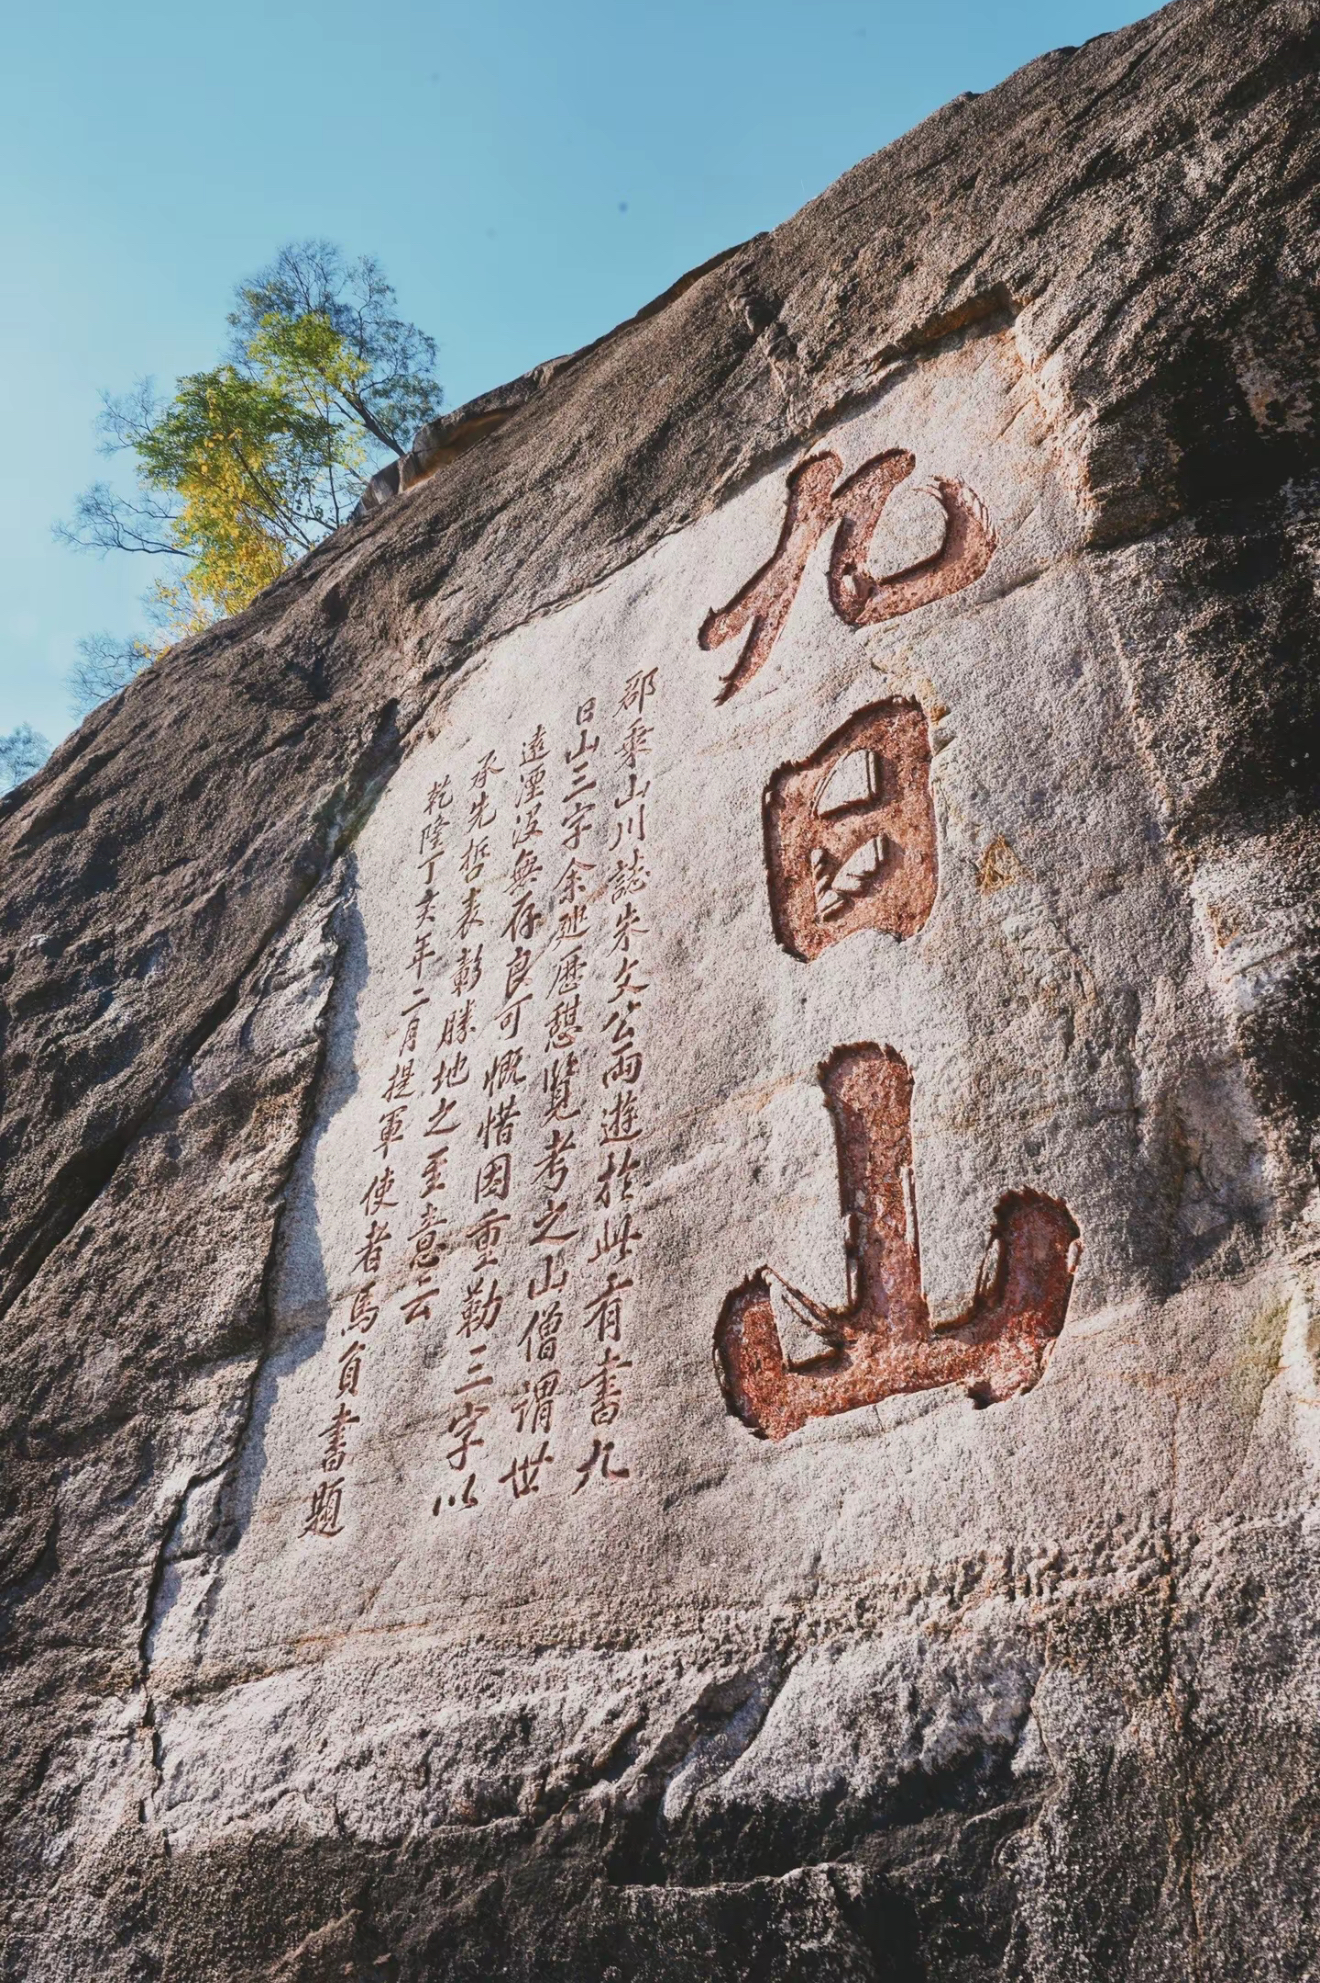 九日山
郡乘山川誌朱文公兩遊於此有書九
日山三字余廵歷憩覽考之山僧謂世
遠湮沒無存良可慨惜因重勒三字以
承先哲表彰勝地之至意云
乾隆丁亥年二月提軍使者馬負書題